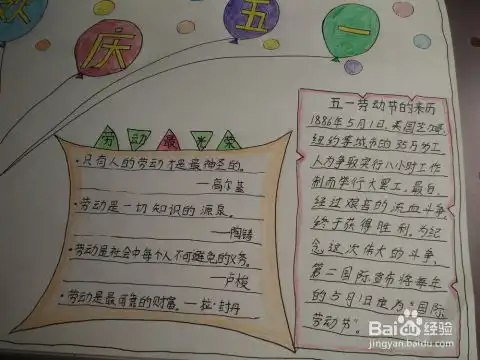 欢庆五一
劳动最光荣
·只有人的劳动才是最神圣的。
—高尔基
·劳动是一切知识的源泉。
—陶铸
·劳动是社会中每个人不可避免的义务。
—卢梭
·劳动是最可靠的财富。—拉·封丹
五一劳动节的来历
1886年5月1日,美国芝加哥、
纽约等城市的35万名工
人为争取实行八小时工作
制而举行大罢工,最后,
经过艰苦的流血斗争,
终于获得胜利,为纪
念这次伟大的斗争,
第二国际宣布将每年
的5月1日定为“国际
劳动节”。
Baidu经验
jingyan.baidu.com